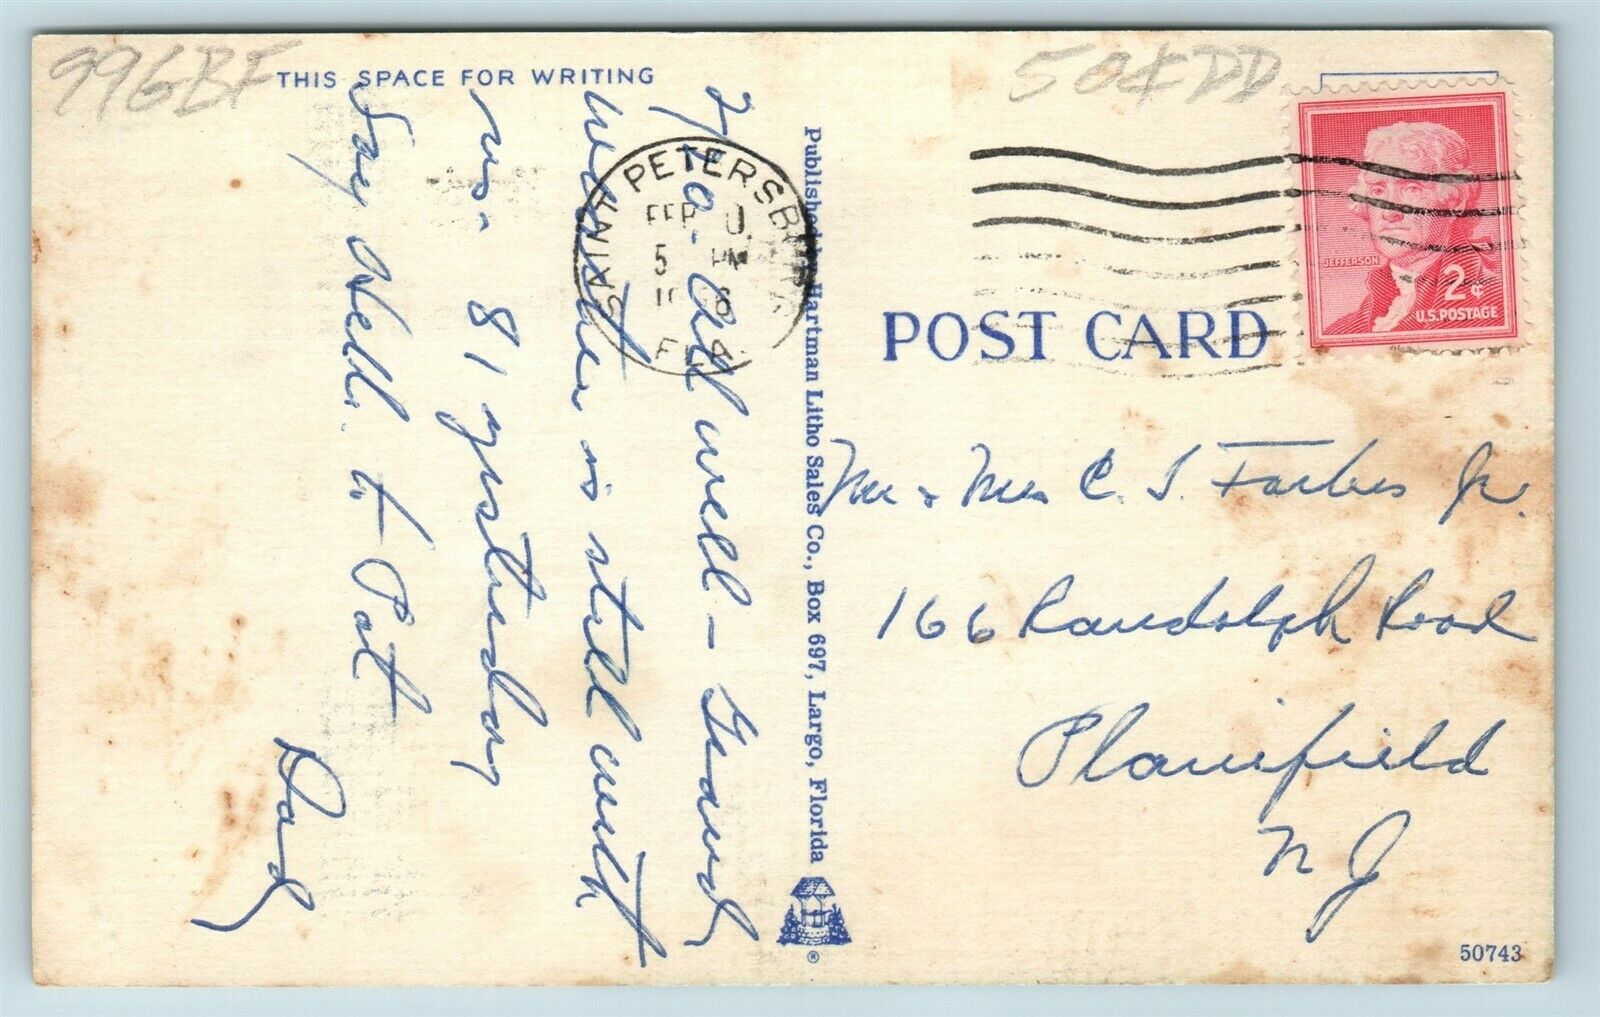 996BF
50¢DD
THIS SPACE FOR WRITING
2/10. All well - Grand
weather is still with
us. 81 yesterday
Say Hello to Pat
Dad
SAINT PETERSBURG
FEB
5 PM
FLA
Published by Hartman Litho Sales Co., Box 697, Largo, Florida
®
POST CARD
JEFFERSON
2¢
U.S. POSTAGE
Mr & Mrs C. S. Forbes Jr.
166 Randolph Road
Plainfield
N J
50743